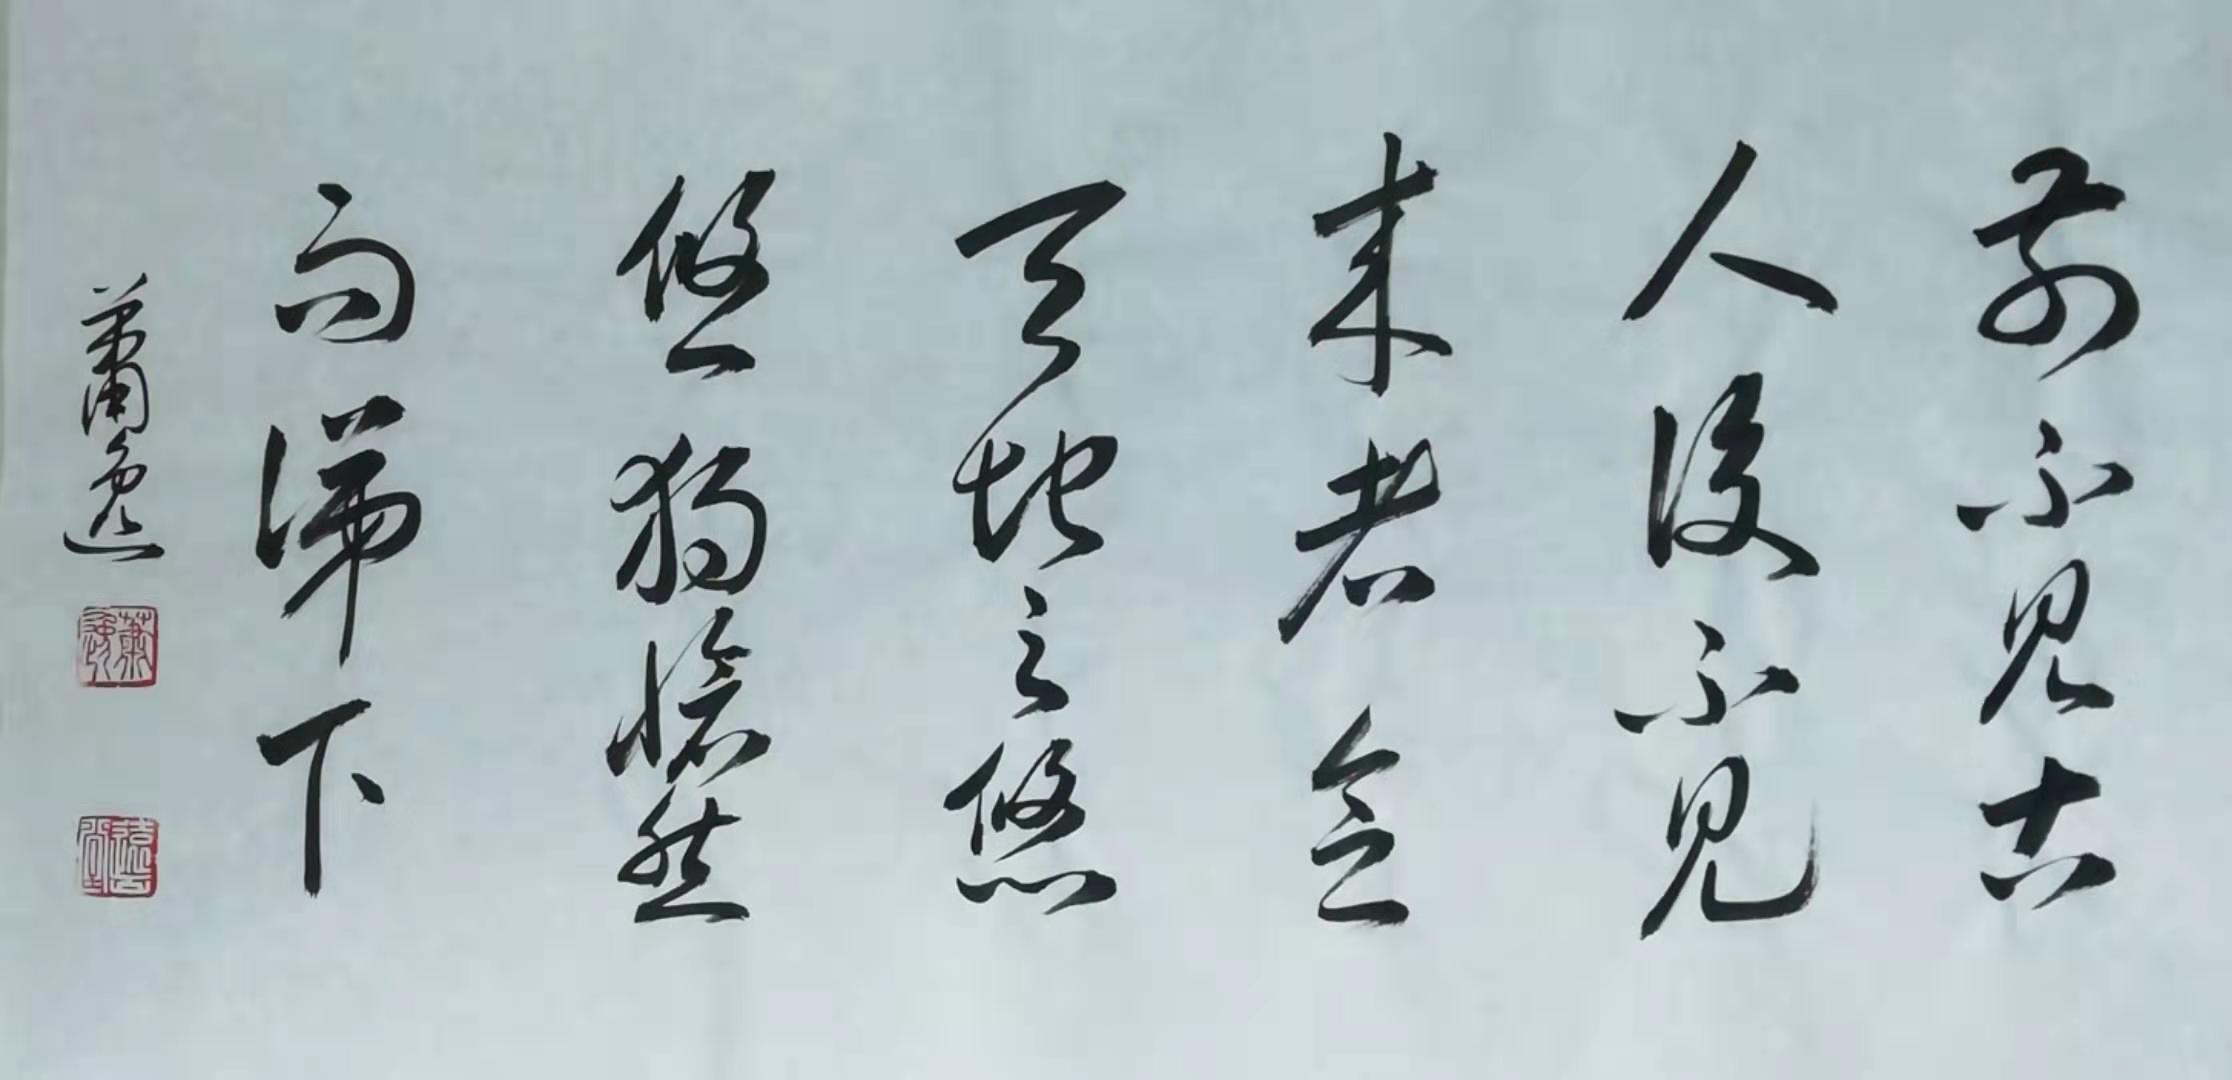 前不見古
人後不見
来者念
天地之悠
悠獨愴然
而涕下
蕭逸